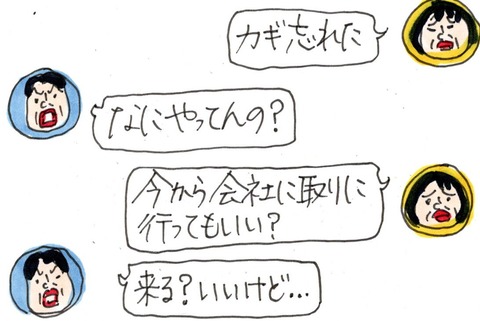 カギ忘れた
なにやってんの?
今から会社に取りに
行ってもいい?
来る?いいけど...